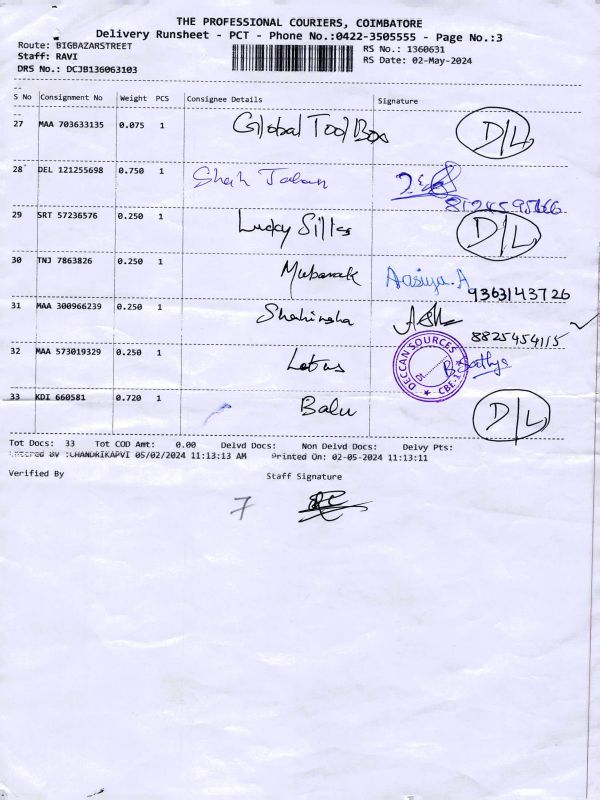 THE PROFESSIONAL COURIERS, COIMBATORE
Delivery Runsheet - PCT - Phone No.:0422-3505555 - Page No.:3
Route: BIGBAZARSTREET
RS No.: 1360631
Staff: RAVI
RS Date: 02-May-2024
DRS No.: DCJB136063103
S No Consignment No Weight PCS Consignee Details Signature
27 MAA 703633135 0.075 1 Global Tool Box D/L
28 DEL 121255698 0.750 1 Shah Taban
29 SRT 57236576 0.250 1 Lucky Silks D/L
30 TNJ 7863826 0.250 1 Mubarak Aasiya.A 9363143726
31 MAA 300966239 0.250 1 Shahinsha 8825454115
32 MAA 573019329 0.250 1 Lotus DECCAN SOURCES CBE-1 B. Sathya
33 KDI 660581 0.720 1 Balu D/L
Tot Docs: 33 Tot COD Amt: 0.00 Delvd Docs: Non Delvd Docs: Delvy Pts:
Entered By :CHANDRIKAPVI 05/02/2024 11:13:13 AM Printed On: 02-05-2024 11:13:11
Verified By Staff Signature
7